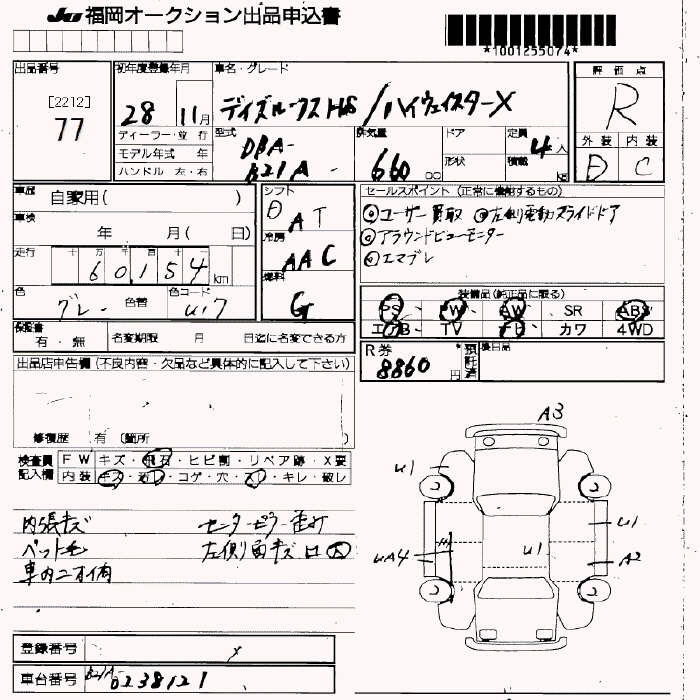 JU 福岡オークション出品申込書
*1001255074*
出品番号
[2212]
77
初年度登録年月
28 11月
ディーラー・並行
モデル年式 年
ハンドル 左・右
車名・グレード
デイズルークス /ハイウェイスターX
型式
DBA-
B21A-
排気量
660 cc
ドア
形状
定員
4人
積載
kg
評価点
R
外装 内装
D C
車歴
自家用( )
車検
年 月( 日)
走行
十 万 千 百 十
60154 km
色
グレー
色替
色コード
シフト
AT
冷房
AAC
燃料
G
セールスポイント (正常に機能するもの)
ユーザー買取 左側電動スライドドア
アラウンドビューモニター
エマブレ
装備品(純正品に限る)
PS・PW・AW・SR ABS
エアB・TV ナビ・カワ 4WD
保証書
有・無
名変期限 月 日迄に名変できる方
R券
8860円
預託済
後日品
出品店申告欄 (不良内容・欠品など具体的に記入して下さい)
修復歴 有 (箇所
検査員
記入欄
FW キズ・飛石・ヒビ割・リペア跡・X要
内装 キズ・汚レ・コゲ・穴・スレ・キレ・破レ
内張キズ センターピラー歪み
ペット毛 左側
車内ニオイ有
A3
U1
U1
U1
UA4
A2
登録番号
車台番号 B21A- 0238121